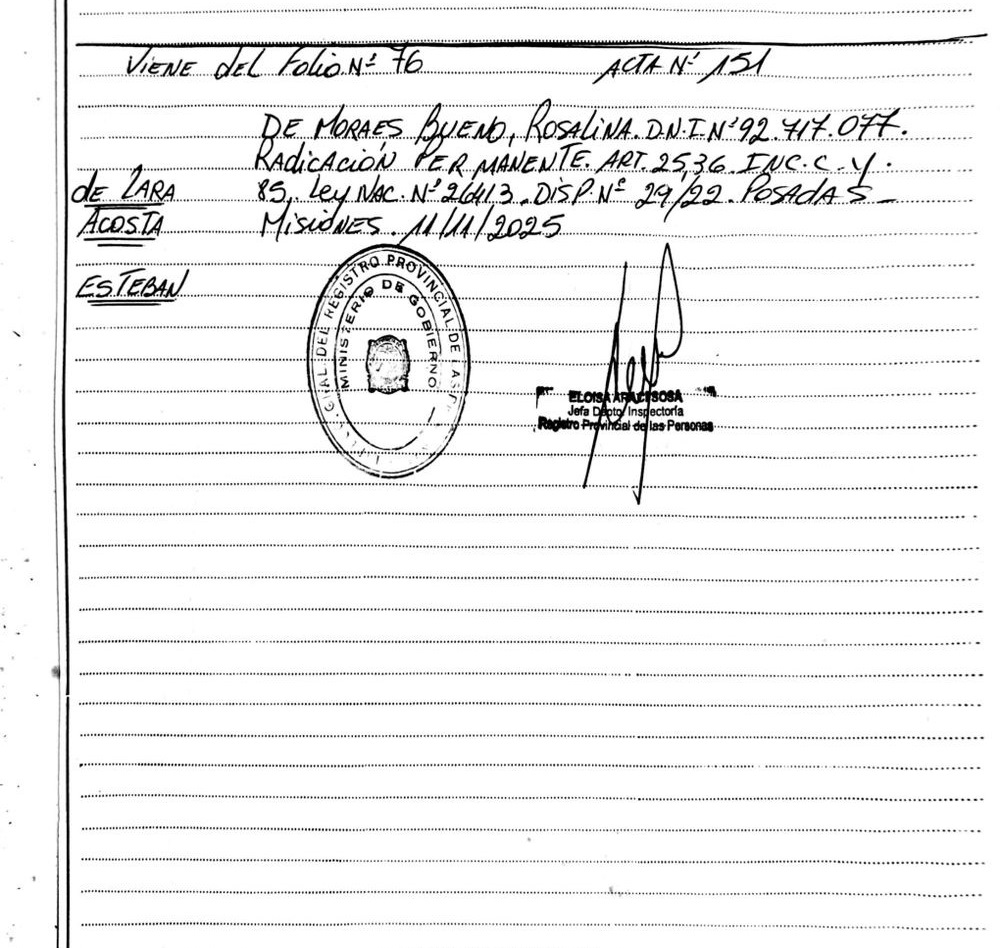 VIENE del Folio Nº 76 ACTA Nº 151
DE MORAES BUENO, ROSALINA. D.N.I Nº 92.717.077.
RADICACIÓN PERMANENTE. ART. 2,5,36. INC. C. Y.
de LARA 85, Ley NAC. Nº 26413. DISP. Nº 29/22. POSADAS -
ACOSTA MISIONES. 11/11/2025
ESTEBAN
GRAL. DEL REGISTRO PROVINCIAL DE LAS
MINISTERIO DE GOBIERNO
ELOISA ARACI SOSA
Jefa Dpto. Inspectoría
Registro Provincial de las Personas